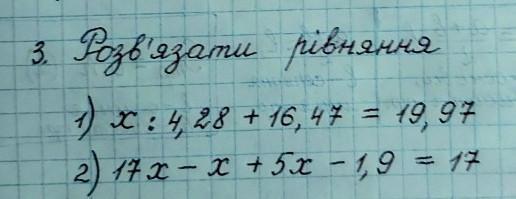 3. Розв'язати рівняння
1) x : 4,28 + 16,47 = 19,97
2) 17x - x + 5x - 1,9 = 17